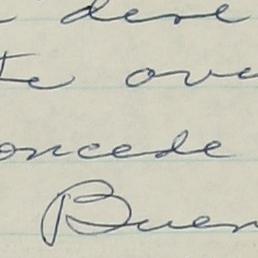 dere
te ove
oncede
Buen